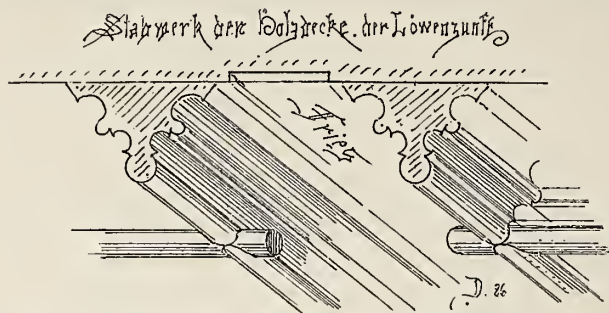 Stabwerk der Holzdecke der Löwenzunft
Fries
D. 86